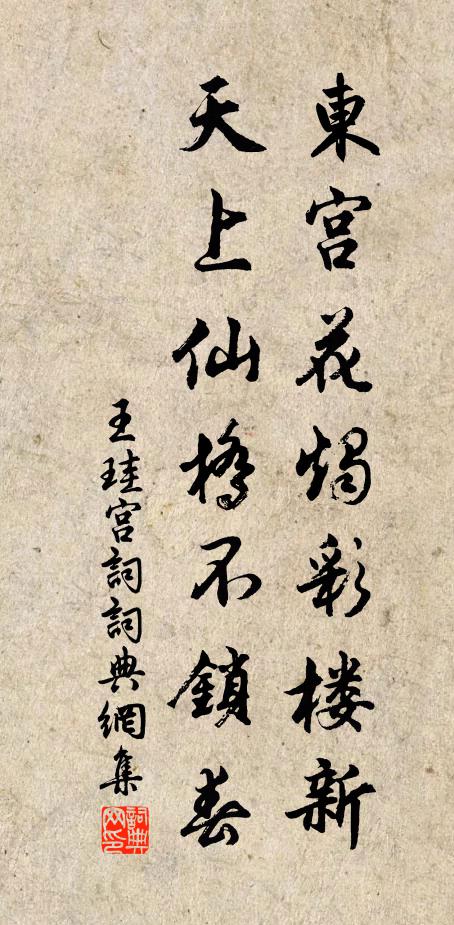 東宫花燭彩楼新
天上仙橋不鎖春
王珪宫詞詞典網集
詞典网印